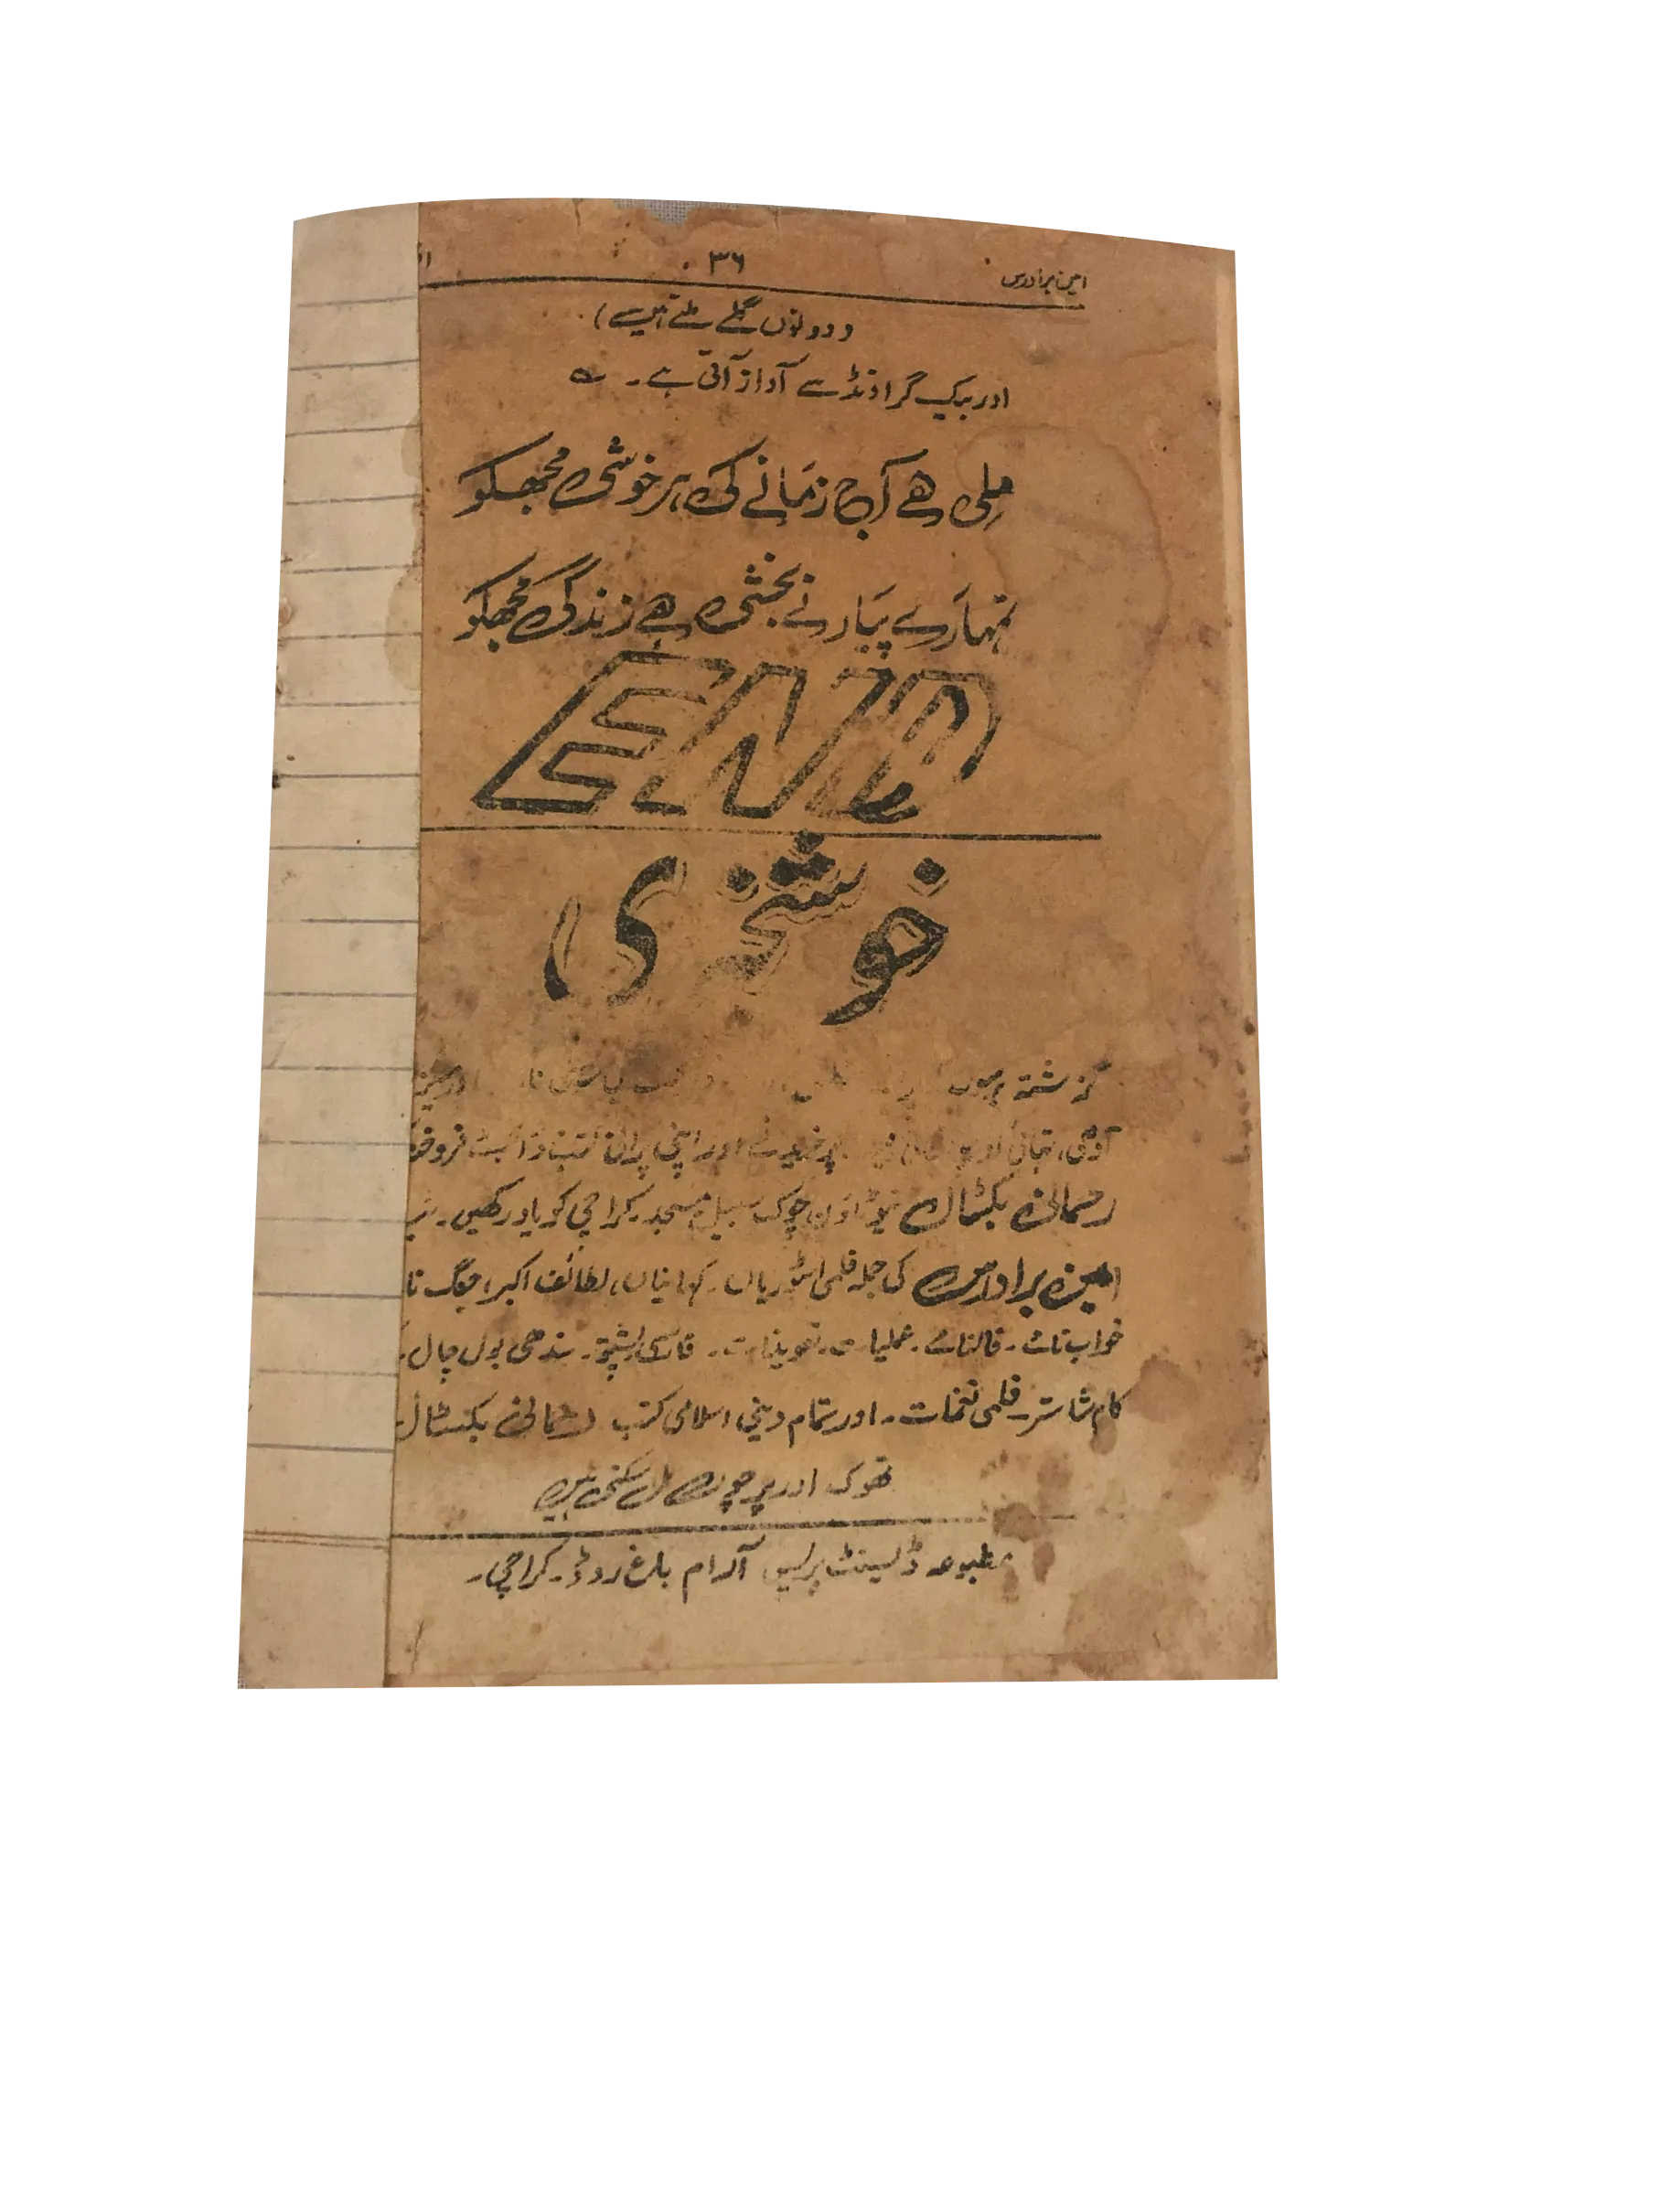 امین برادرس ۳۶
(دونوں گلے ملتے ہیں)
اور بیک گراونڈ سے آواز آتی ہے۔ ؎
ملی ھے آج زمانے کی ہر خوشی مجھکو
تمہارے پیار نے بخشی ھے زندگی مجھکو
END
خوشخبری
گزشتہ
آڈی، خریدنے اور اپنی پرانی
رحمانی بکسٹال نیو ٹاؤن چوک سبیل مسجد۔ کراچی کو یاد رکھیں۔
امین برادرس کی جملہ فلمی اسٹوریاں۔ کہانیاں، لطائف اکبر، جنگ نا
خواب نامے۔ فالنامے۔ عملیات۔ تعویذات۔ فارسی، پشتو۔ سندھی بول چال۔
کام شاستر۔ فلمی نغمات۔ اور تمام دینی، اسلامی کتب رحمانی بکسٹال
تھوک اور پرچون مل سکتی ہیں
مطبوعہ ڈیسینٹ پریس آرام باغ روڈ۔ کراچی۔